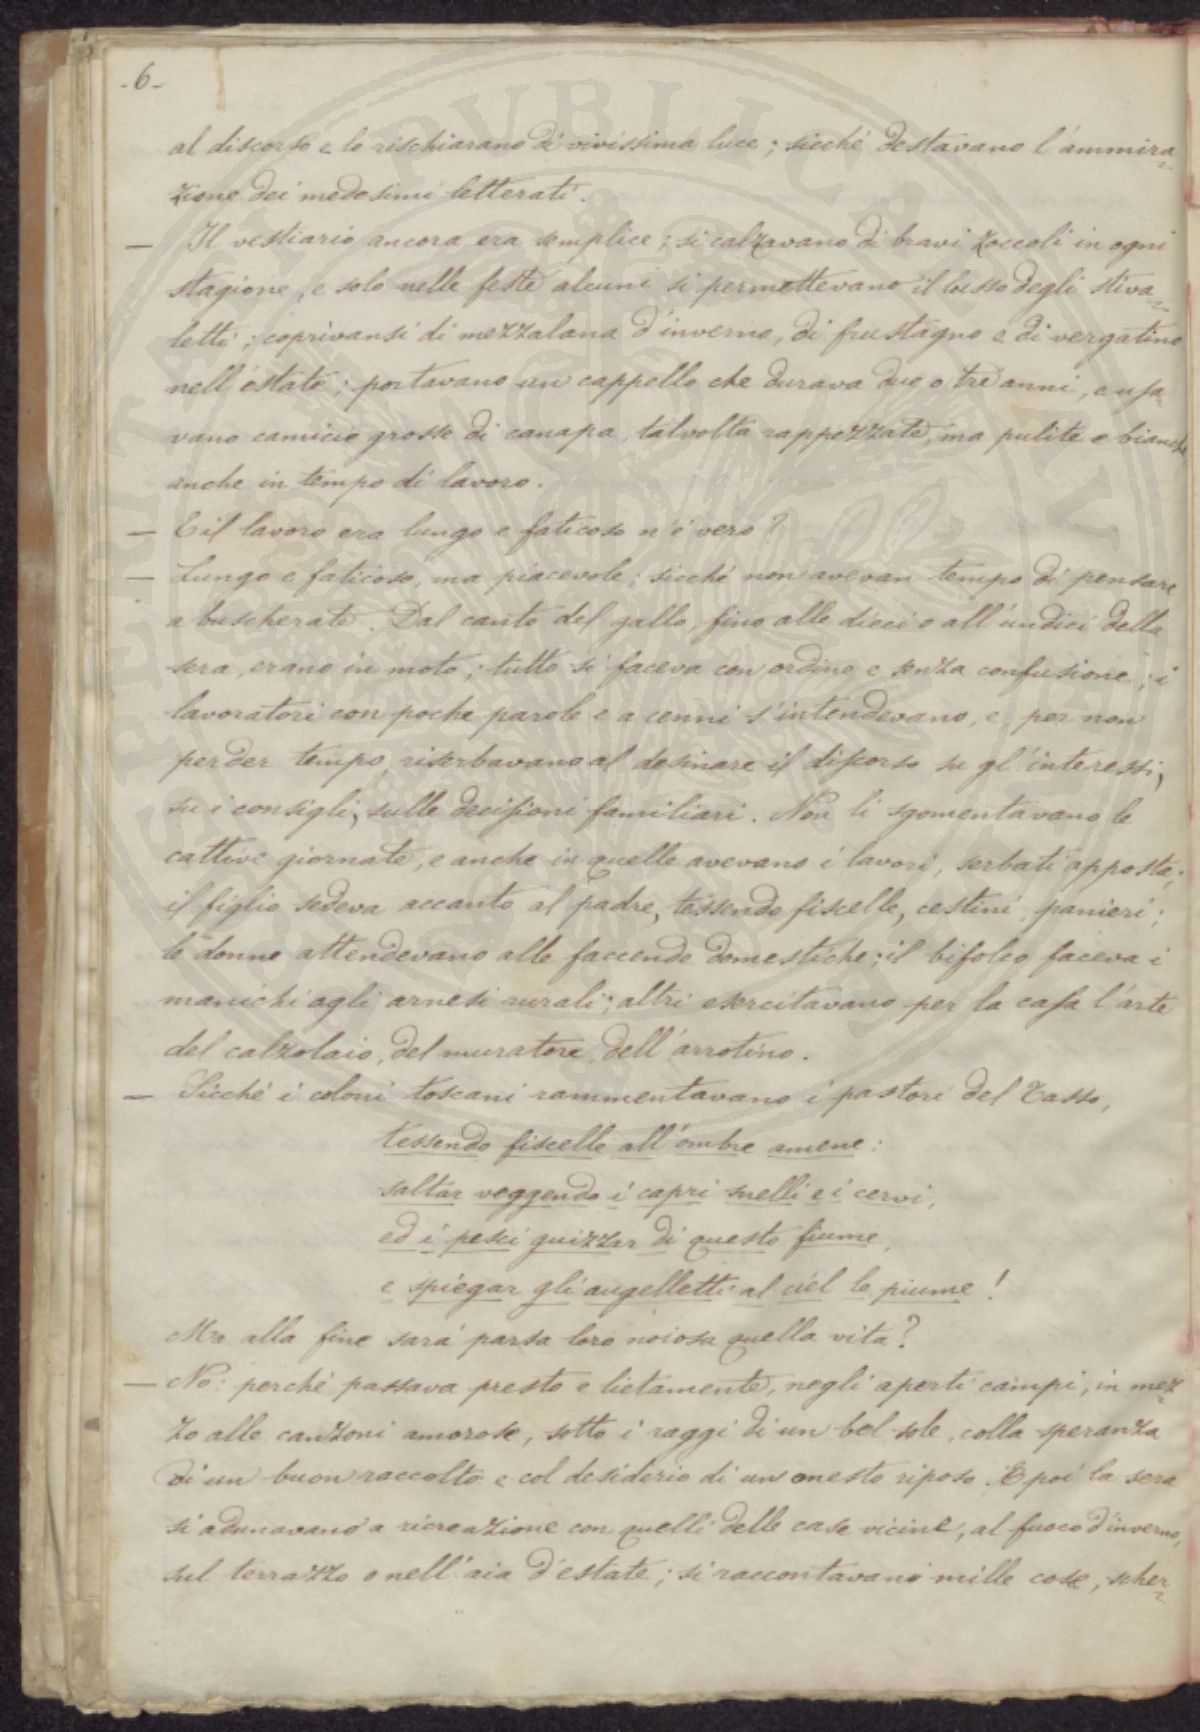 -6-
al discorso e lo rischiarano di vivissima luce; sicché destavano l'ammira=
zione dei medesimi letterati.
— Il vestiario ancora era semplice; si calzavano di bravi zoccoli in ogni
stagione, e solo nelle feste alcuni si permettevano il lusso degli stiva=
letti; coprivansi di mezzalana d'inverno, di frustagno e di vergatino
nell'estate; portavano un cappello che durava due o tre anni, e usa=
vano camicie grosse di canapa, talvolta rappezzate, ma pulite e bianche
anche in tempo di lavoro.
— E il lavoro era lungo e faticoso n'è vero?
— Lungo e faticoso, ma piacevole; sicché non avevan tempo di pensare
a buscherate. Dal canto del gallo, fino alle dieci o all'undici della
sera, erano in moto; tutto si faceva con ordine e senza confusione; i
lavoratori con poche parole e a cenni s'intendevano, e, per non
perder tempo, riserbavano al desinare il discorso su gl'interessi,
su i consigli, sulle decisioni familiari. Non li sgomentavano le
cattive giornate, e anche in quelle avevano i lavori, serbati apposta;
il figlio sedeva accanto al padre, tessendo fiscelle, cestini, panieri;
le donne attendevano alle faccende domestiche; il bifolco faceva i
manichi agli arnesi rurali; altri esercitavano per la casa l'arte
del calzolaio, del muratore, dell'arrotino.
— Sicché i coloni toscani rammentavano i pastori del Tasso,
tessendo fiscelle all'ombre amene:
saltar veggendo i capri snelli e i cervi,
ed i pesci guizzar di questo fiume,
e spiegar gli augelletti al ciel le piume!
Ma alla fine sarà parsa loro noiosa quella vita?
— No: perché passava presto e lietamente, negli aperti campi, in mez=
zo alle canzoni amorose, sotto i raggi di un bel sole, colla speranza
di un buon raccolto e col desiderio di un onesto riposo. E poi la sera
si adunavano a ricreazione con quelli delle case vicine, al fuoco d'inverno,
sul terrazzo o nell'aia d'estate; si raccontavano mille cose, scher=